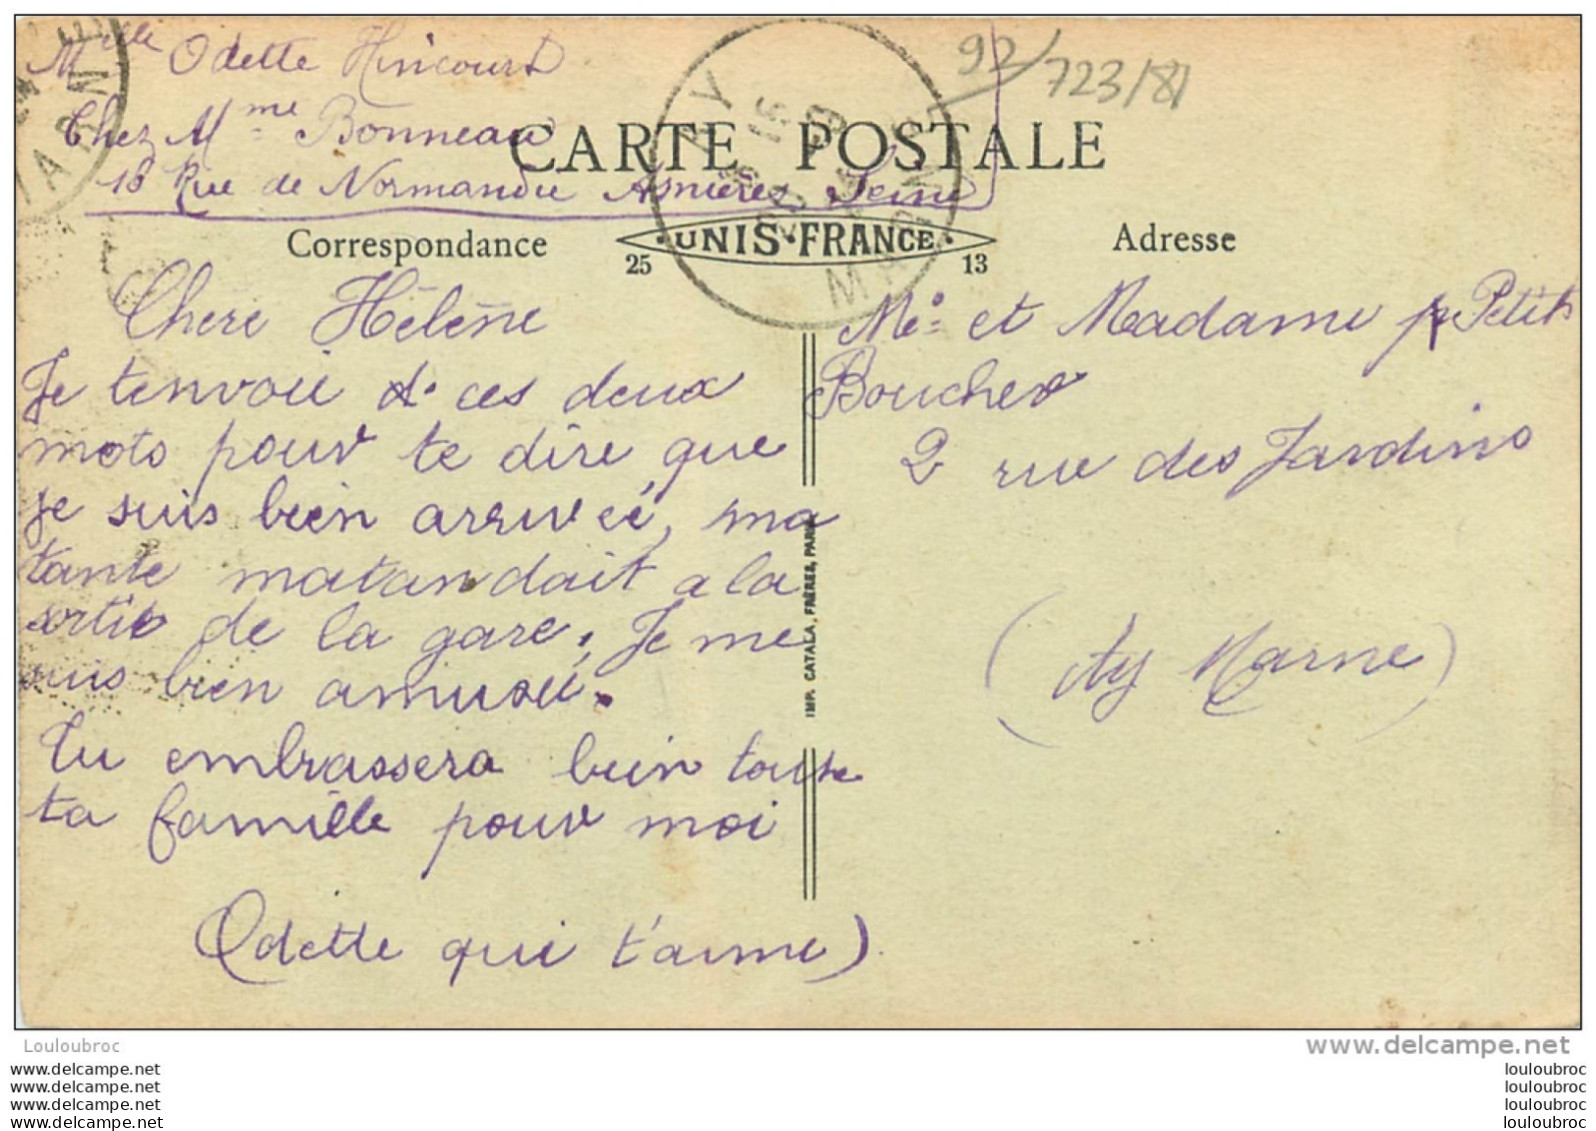 Melle Odette Hincourt
Chez Mme Bonneau
18 Rue de Normandie Asnières Seine
92/723/81
CARTE POSTALE
Correspondance
UNIS-FRANCE
25 13
Adresse
AY
MARNE
Chere Hélène
Je tenvoie ces deux
mots pour te dire que
je suis bien arrivée, ma
tante matandait a la
sortie de la gare, Je me
suis bien amusée.
Tu embrassera bien toute
ta famille pour moi
Odette qui t'aime)
Mr et Madame Petit
Boucher
2 rue des Jardins
(Ay Marne)
IMP. CATALA, FRÈRES, PARIS
Louloubroc
www.delcampe.net
www.delcampe.net
www.delcampe.net
www.delcampe.net
www.delcampe.net
louloubroc
louloubroc
louloubroc
louloubroc